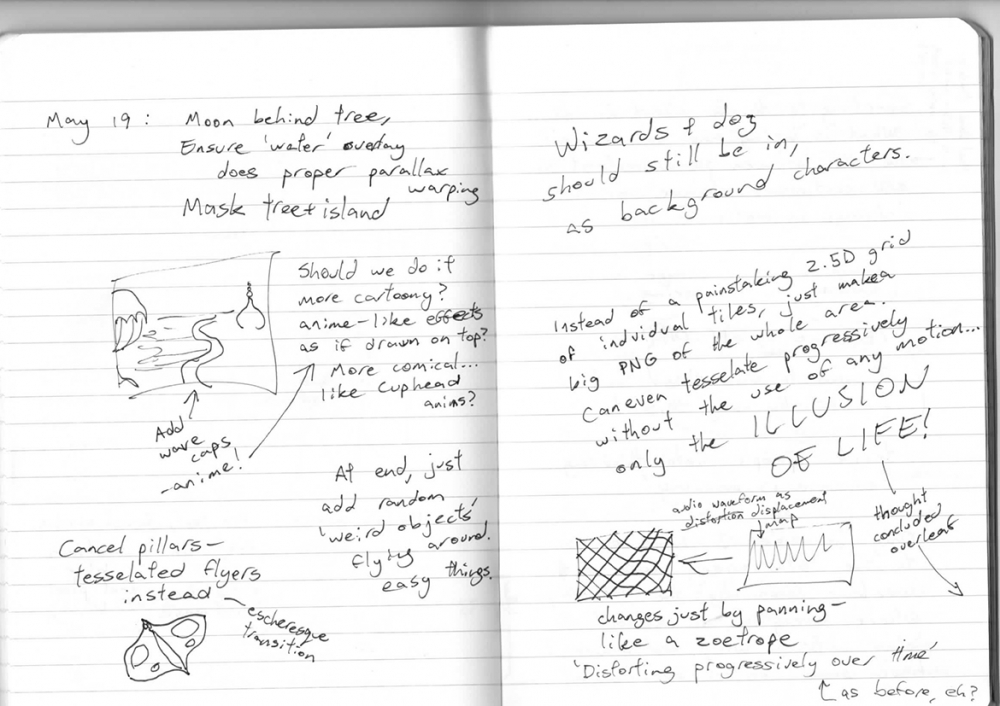 May 19: Moon behind tree,
Ensure 'water' overlay
does proper parallax
warping
Mask tree + island
Should we do it
more cartoony?
anime-like effects
as if drawn on top?
More comical...
like Cuphead
anims?
Add
wave
caps
-anime!
At end, just
add random
'weird objects'
flying around.
easy things.
Cancel pillars-
tesselated flyers
instead
escheresque
transition
Wizards + dog
should still be in,
as background characters.
Instead of a painstaking 2.5D grid
of indvidual tiles, just make a
big PNG of the whole area.
Can even tesselate progressively
without the use of any motion...
only the ILLUSION
OF LIFE!
thought
concluded
overleaf
audio waveform as
distortion displacement
map
changes just by panning-
like a zoetrope
'Distorting progressively over time'
as before, eh?